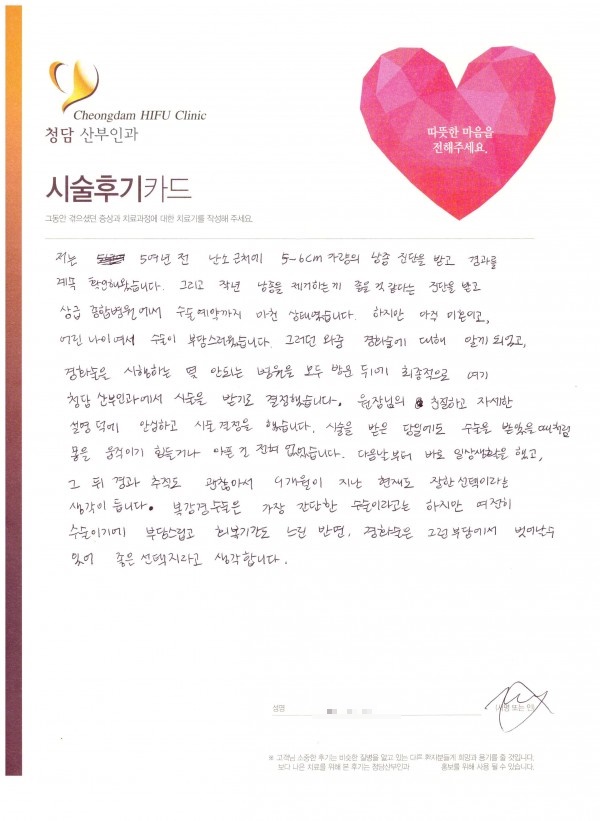 Cheongdam HIFU Clinic
청담 산부인과
따뜻한 마음을
전해주세요.
시술후기카드
그동안 겪으셨던 증상과 치료과정에 대한 치료기를 작성해 주세요.
저는 5여년 전 난소 근처에 5-6cm 가량의 낭종 진단을 받고 경과를
계속 확인해왔습니다. 그리고 작년 낭종을 제거하는게 좋을 것 같다는 진단을 받고
상급 종합병원에서 수술예약까지 마친 상태였습니다. 하지만 아직 미혼이고,
어린 나이여서 수술이 부담스러웠습니다. 그러던 와중 경화술에 대해 알게 되었고,
경화술을 시행하는 몇 안되는 병원을 모두 방문 뒤에 최종적으로 여기
청담 산부인과에서 시술을 받기로 결정했습니다. 원장님의 친절하고 자세한
설명 덕에 안심하고 시술 결정을 했습니다. 시술을 받은 당일에도 수술을 받았을 때처럼
몸을 움직이기 힘들거나 아픈 건 전혀 없었습니다. 다음날부터 바로 일상생활을 했고,
그 뒤 경과 추적도 괜찮아서 4개월이 지난 현재도 잘한 선택이라는
생각이 듭니다. 복강경수술은 가장 간단한 수술이라고는 하지만 여전히
수술이기에 부담스럽고 회복기간도 느린 반면, 경화술은 그런 부담에서 벗어날수
있어 좋은 선택지라고 생각합니다.
성명
(서명 또는 인)
※ 고객님 소중한 후기는 비슷한 질병을 앓고 있는 다른 환자분들께 희망과 용기를 줄 것입니다.
보다 나은 치료를 위해 본 후기는 청담산부인과 홍보를 위해 사용 될 수 있습니다.